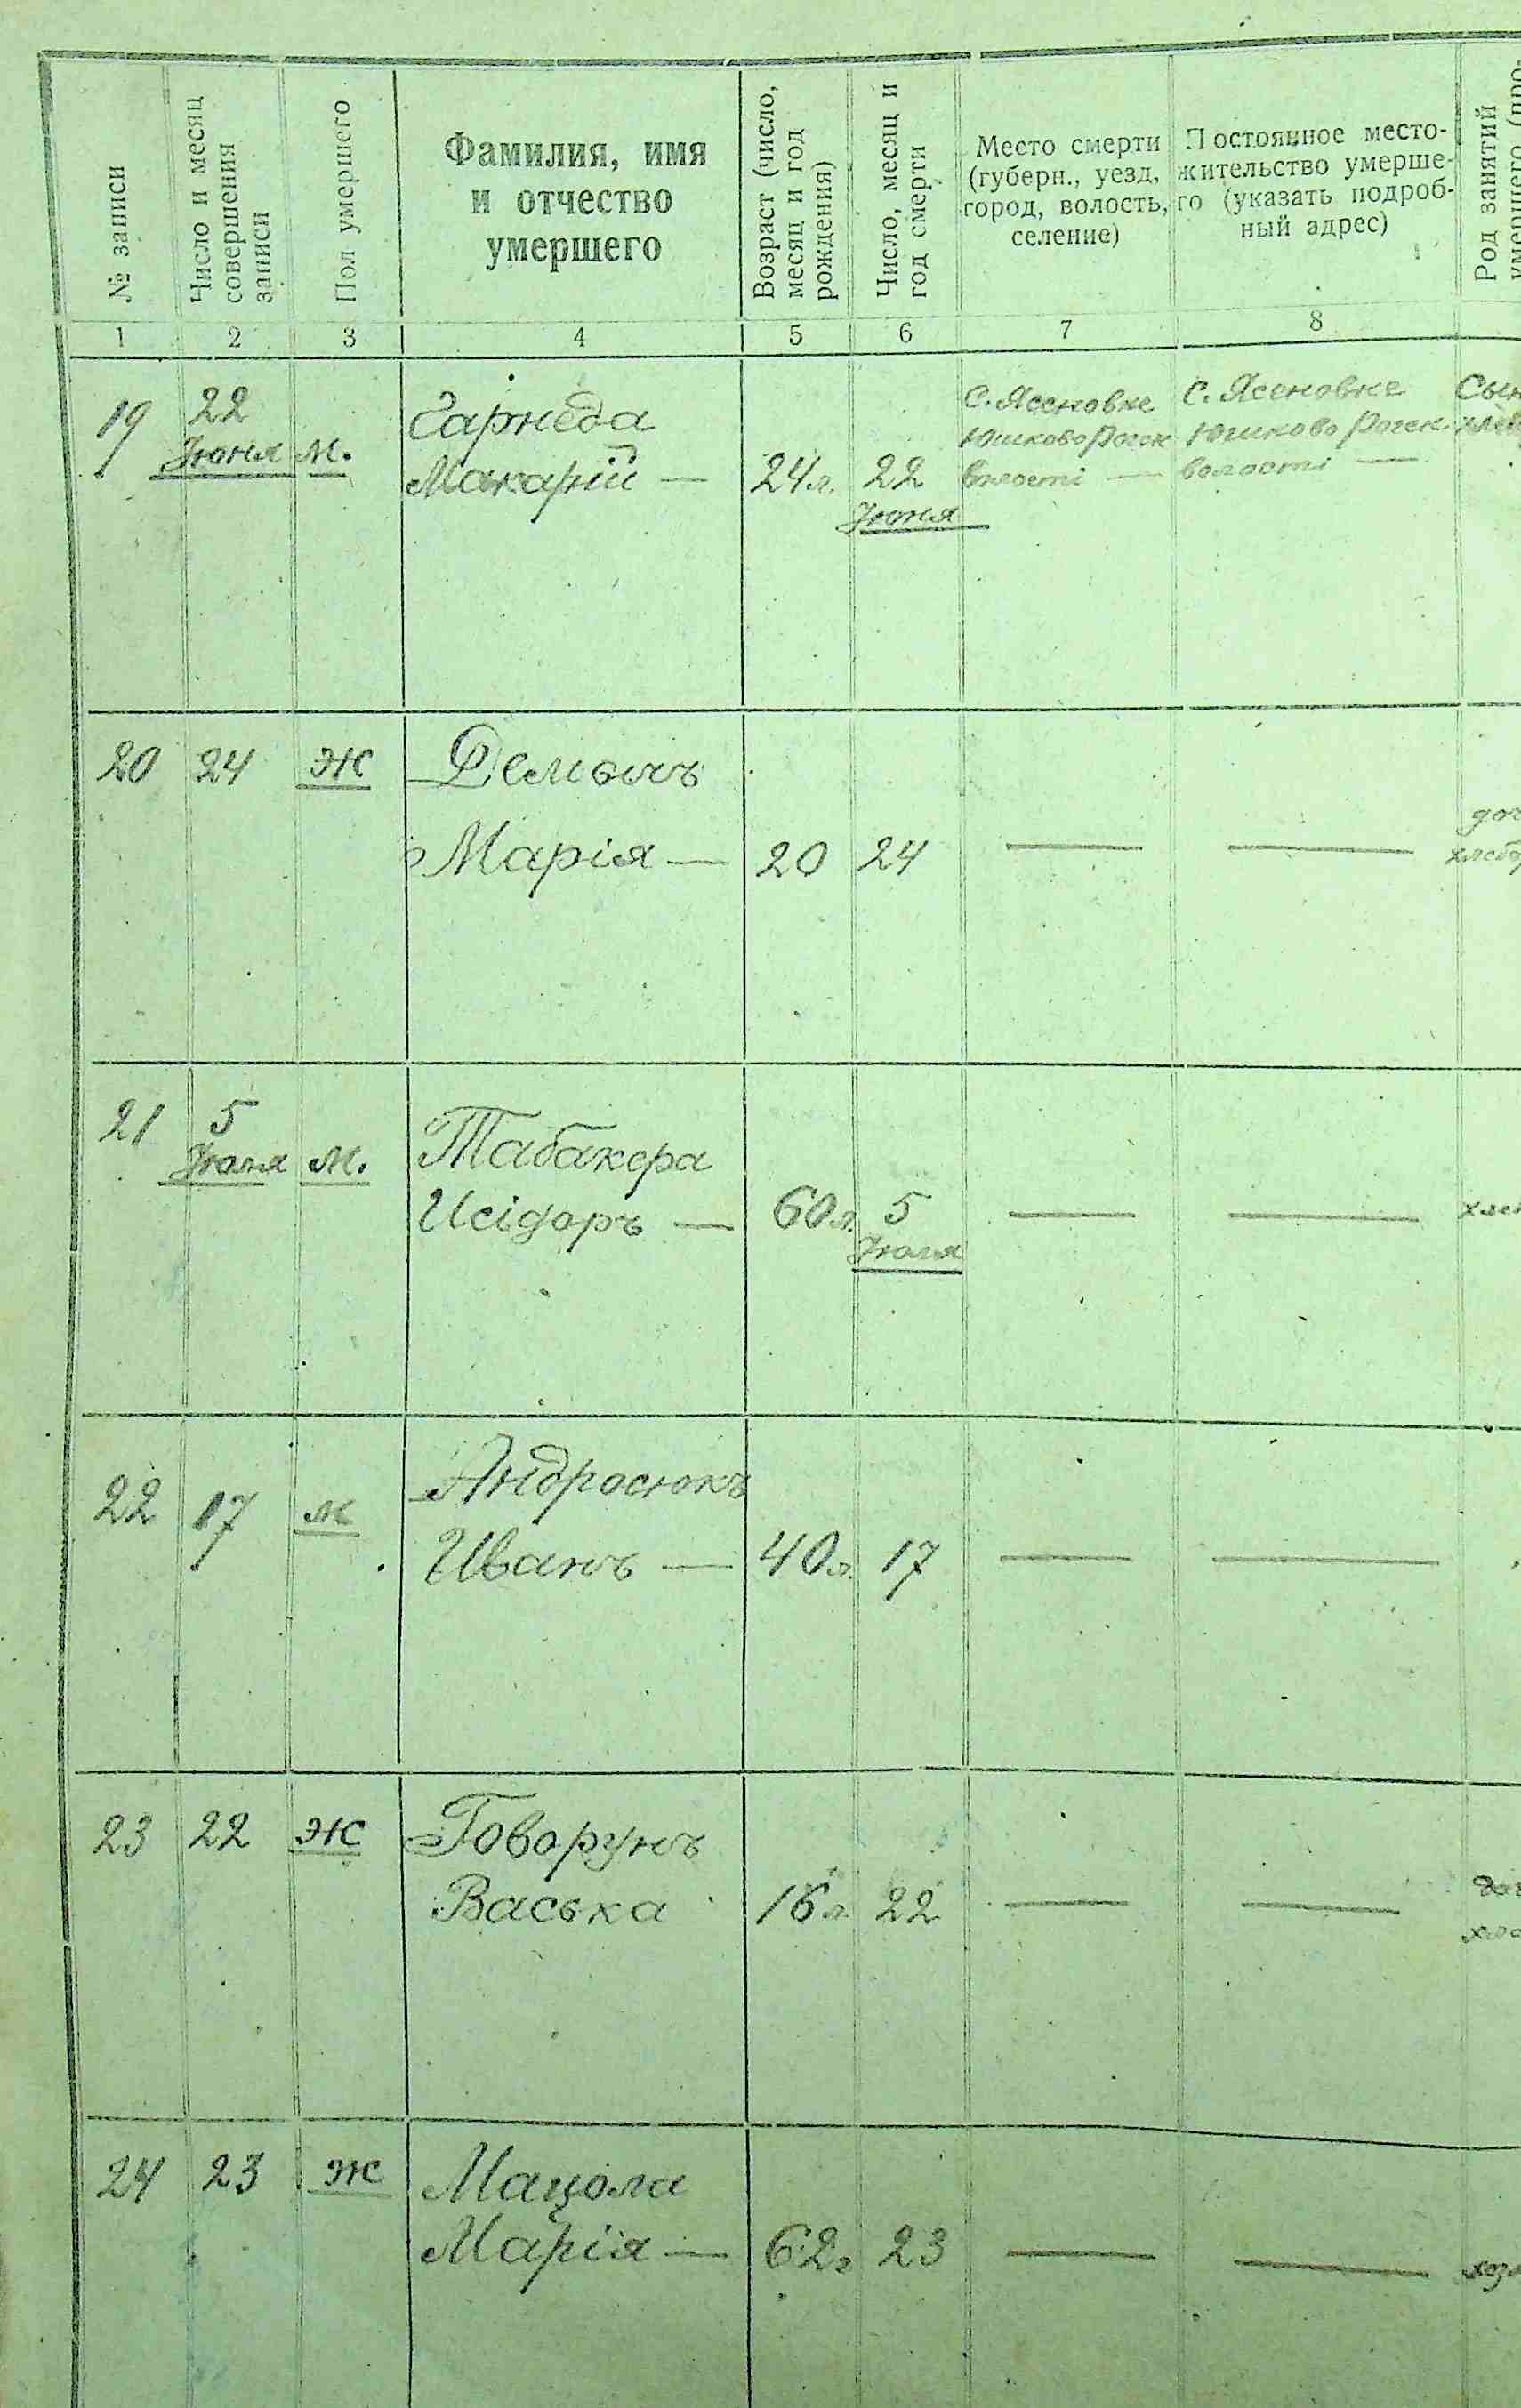 № записи
Число и месяц
совершения
записи
Пол умершего
Фамилия, имя
и отчество
умершего
Возраст (число,
месяц и год
рождения)
Число, месяц и
год смерти
Место смерти
(губерн., уезд,
город, волость,
селение)
Постоянное место-
жительство умерше-
го (указать подроб-
ный адрес)
Род занятий
умершего (про-
1 2 3 4 5 6 7 8
19
22
Іюня
м.
Гарнеда
Макарій —
24 л.
22
Іюня
с. Ясеновке
Юшково Рогск
волості —
с. Ясеновке
Юшково Рогск.
волості —
Сын
хлеб
20 24 Ж
Демъянъ
Марія —
20 24 — —
доч
хлебор
21
5
Іюля
м.
Табакера
Исідоръ —
60 л.
5
Іюля
— —
хле
22 17 м
Андросюкъ
Иванъ —
40 л. 17 — —
23 22 Ж
Говорунъ
Васька
16 л. 22 — —
доч
хле
24 23 Ж
Мацола
Марія —
62 г 23 — —
хозя